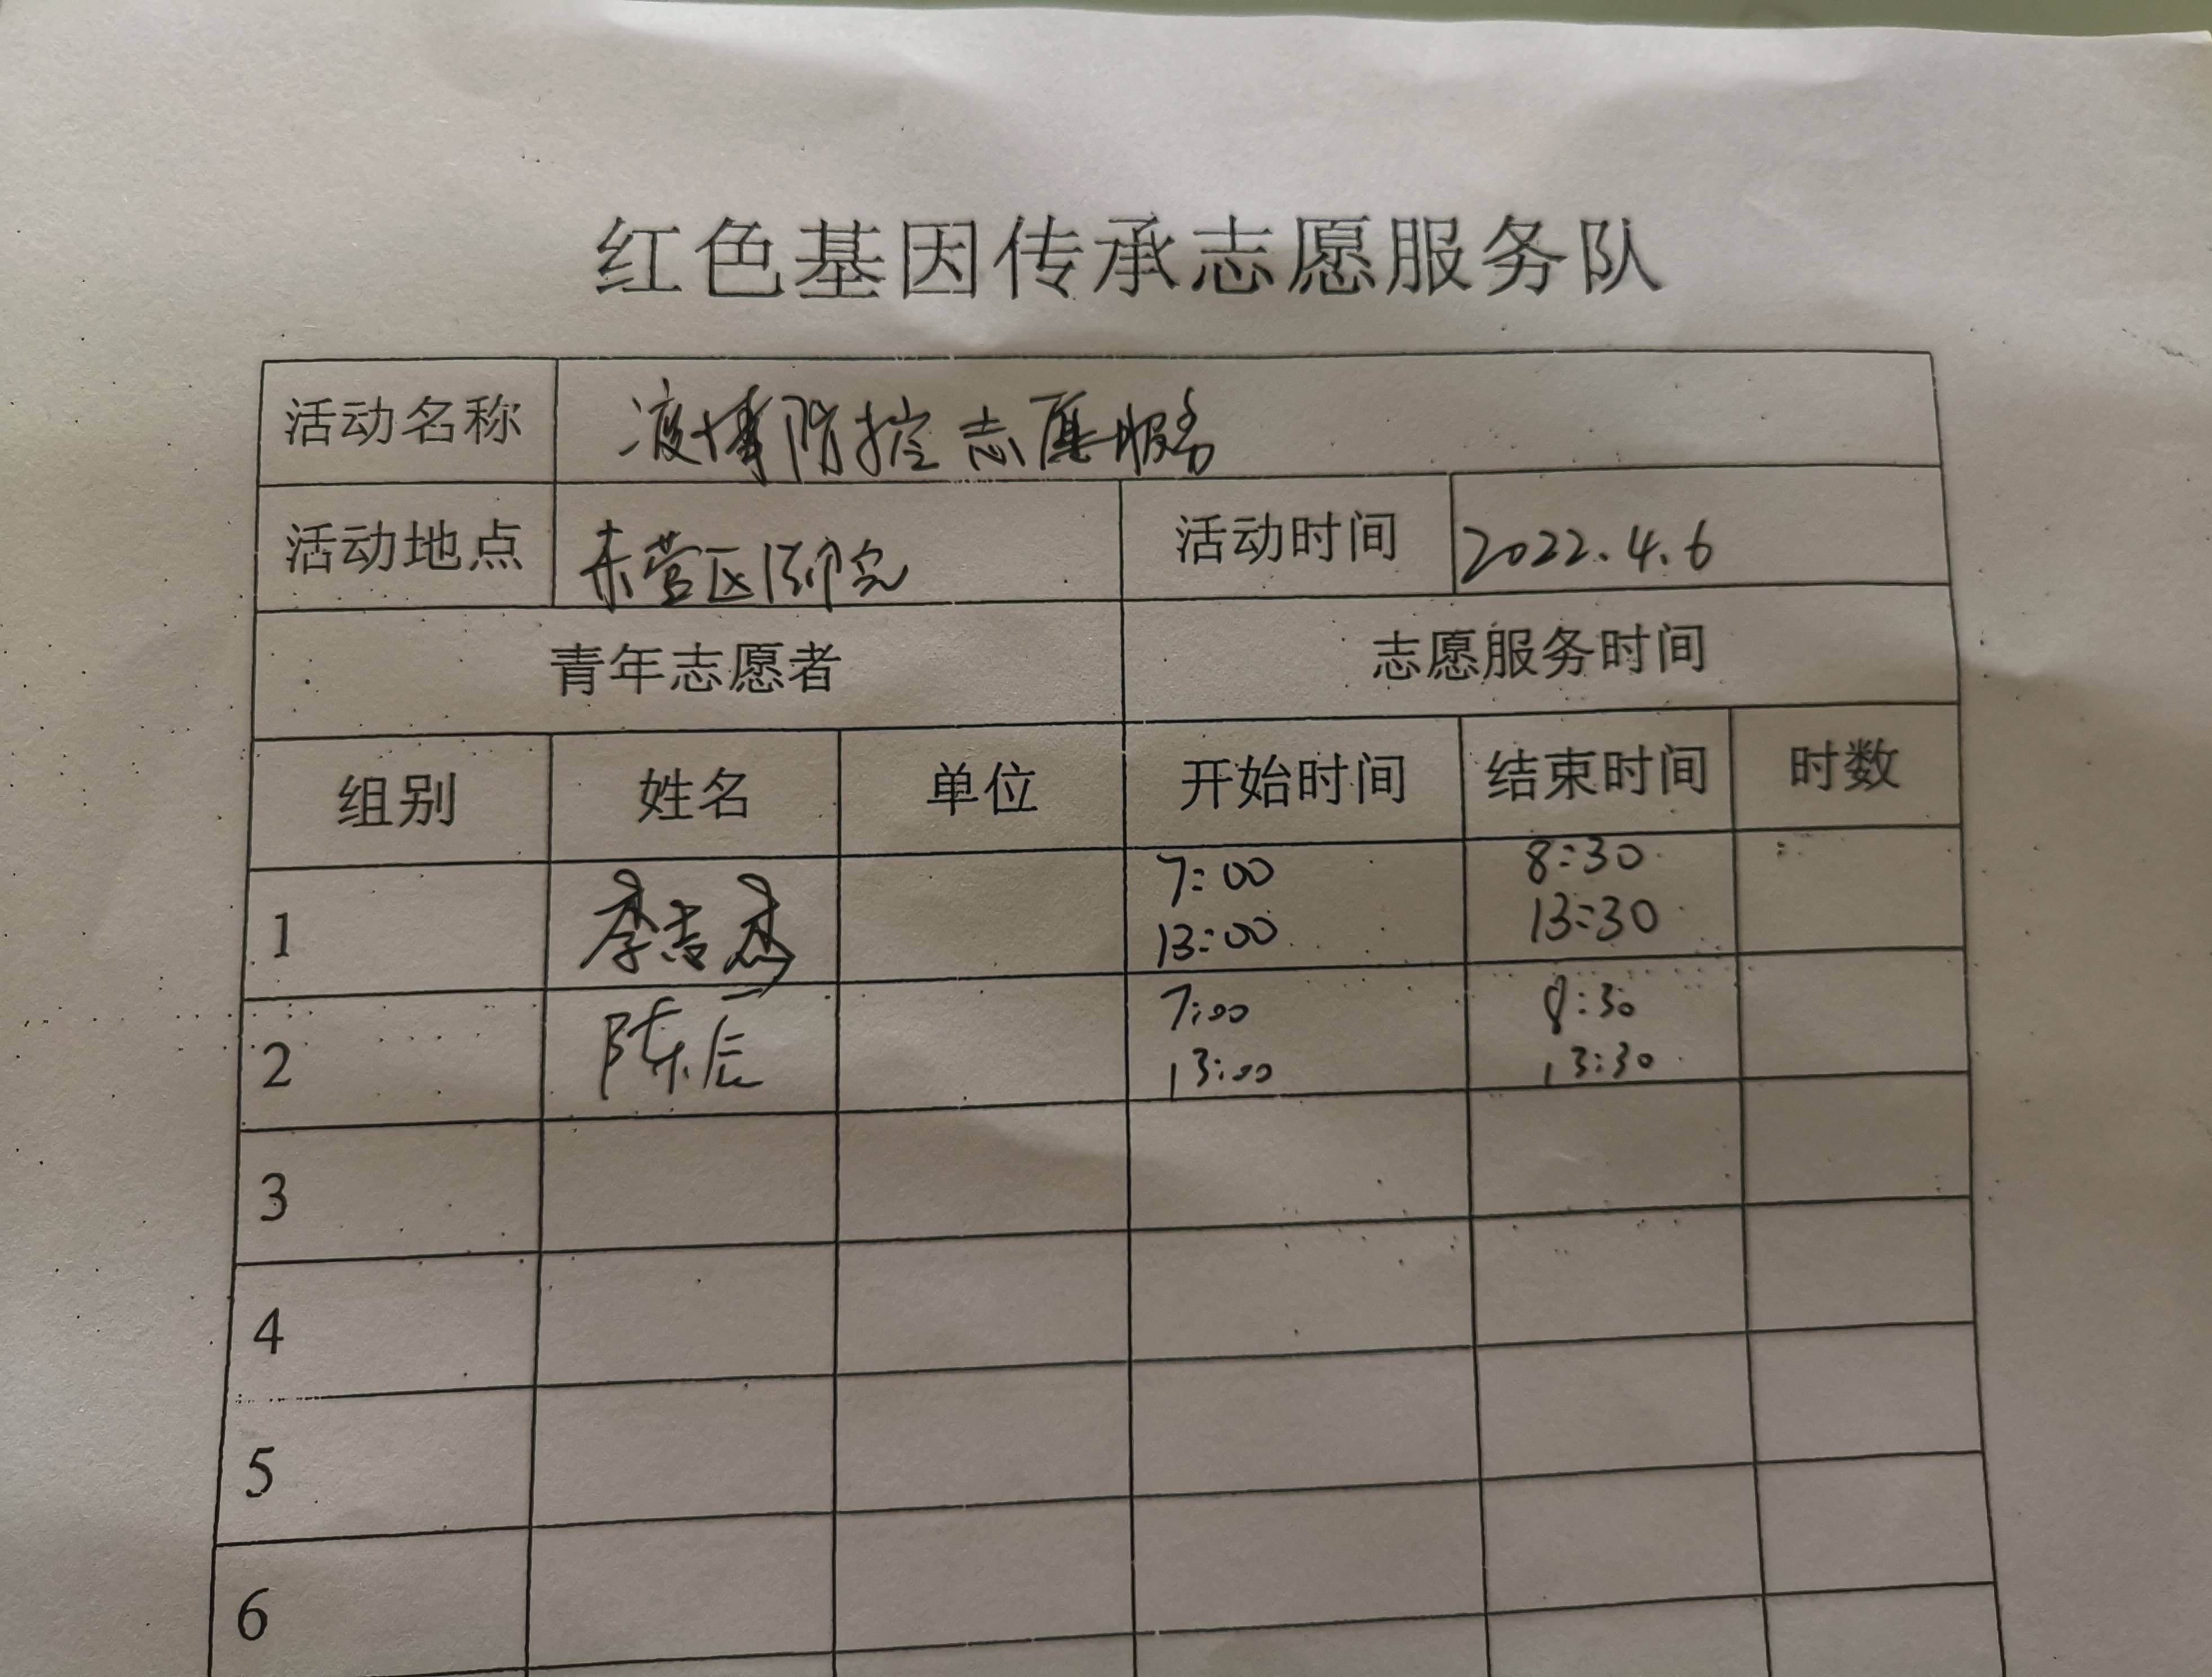 红色基因传承志愿服务队
活动名称 疫情防控志愿服务
活动地点 东营区师院 活动时间 2022.4.6
青年志愿者 志愿服务时间
组别 姓名 单位 开始时间 结束时间 时数
1 李吉杰 7:00 8:30
13:00 13:30
2 陈辰 7:00 8:30
13:00 13:30
3
4
5
6